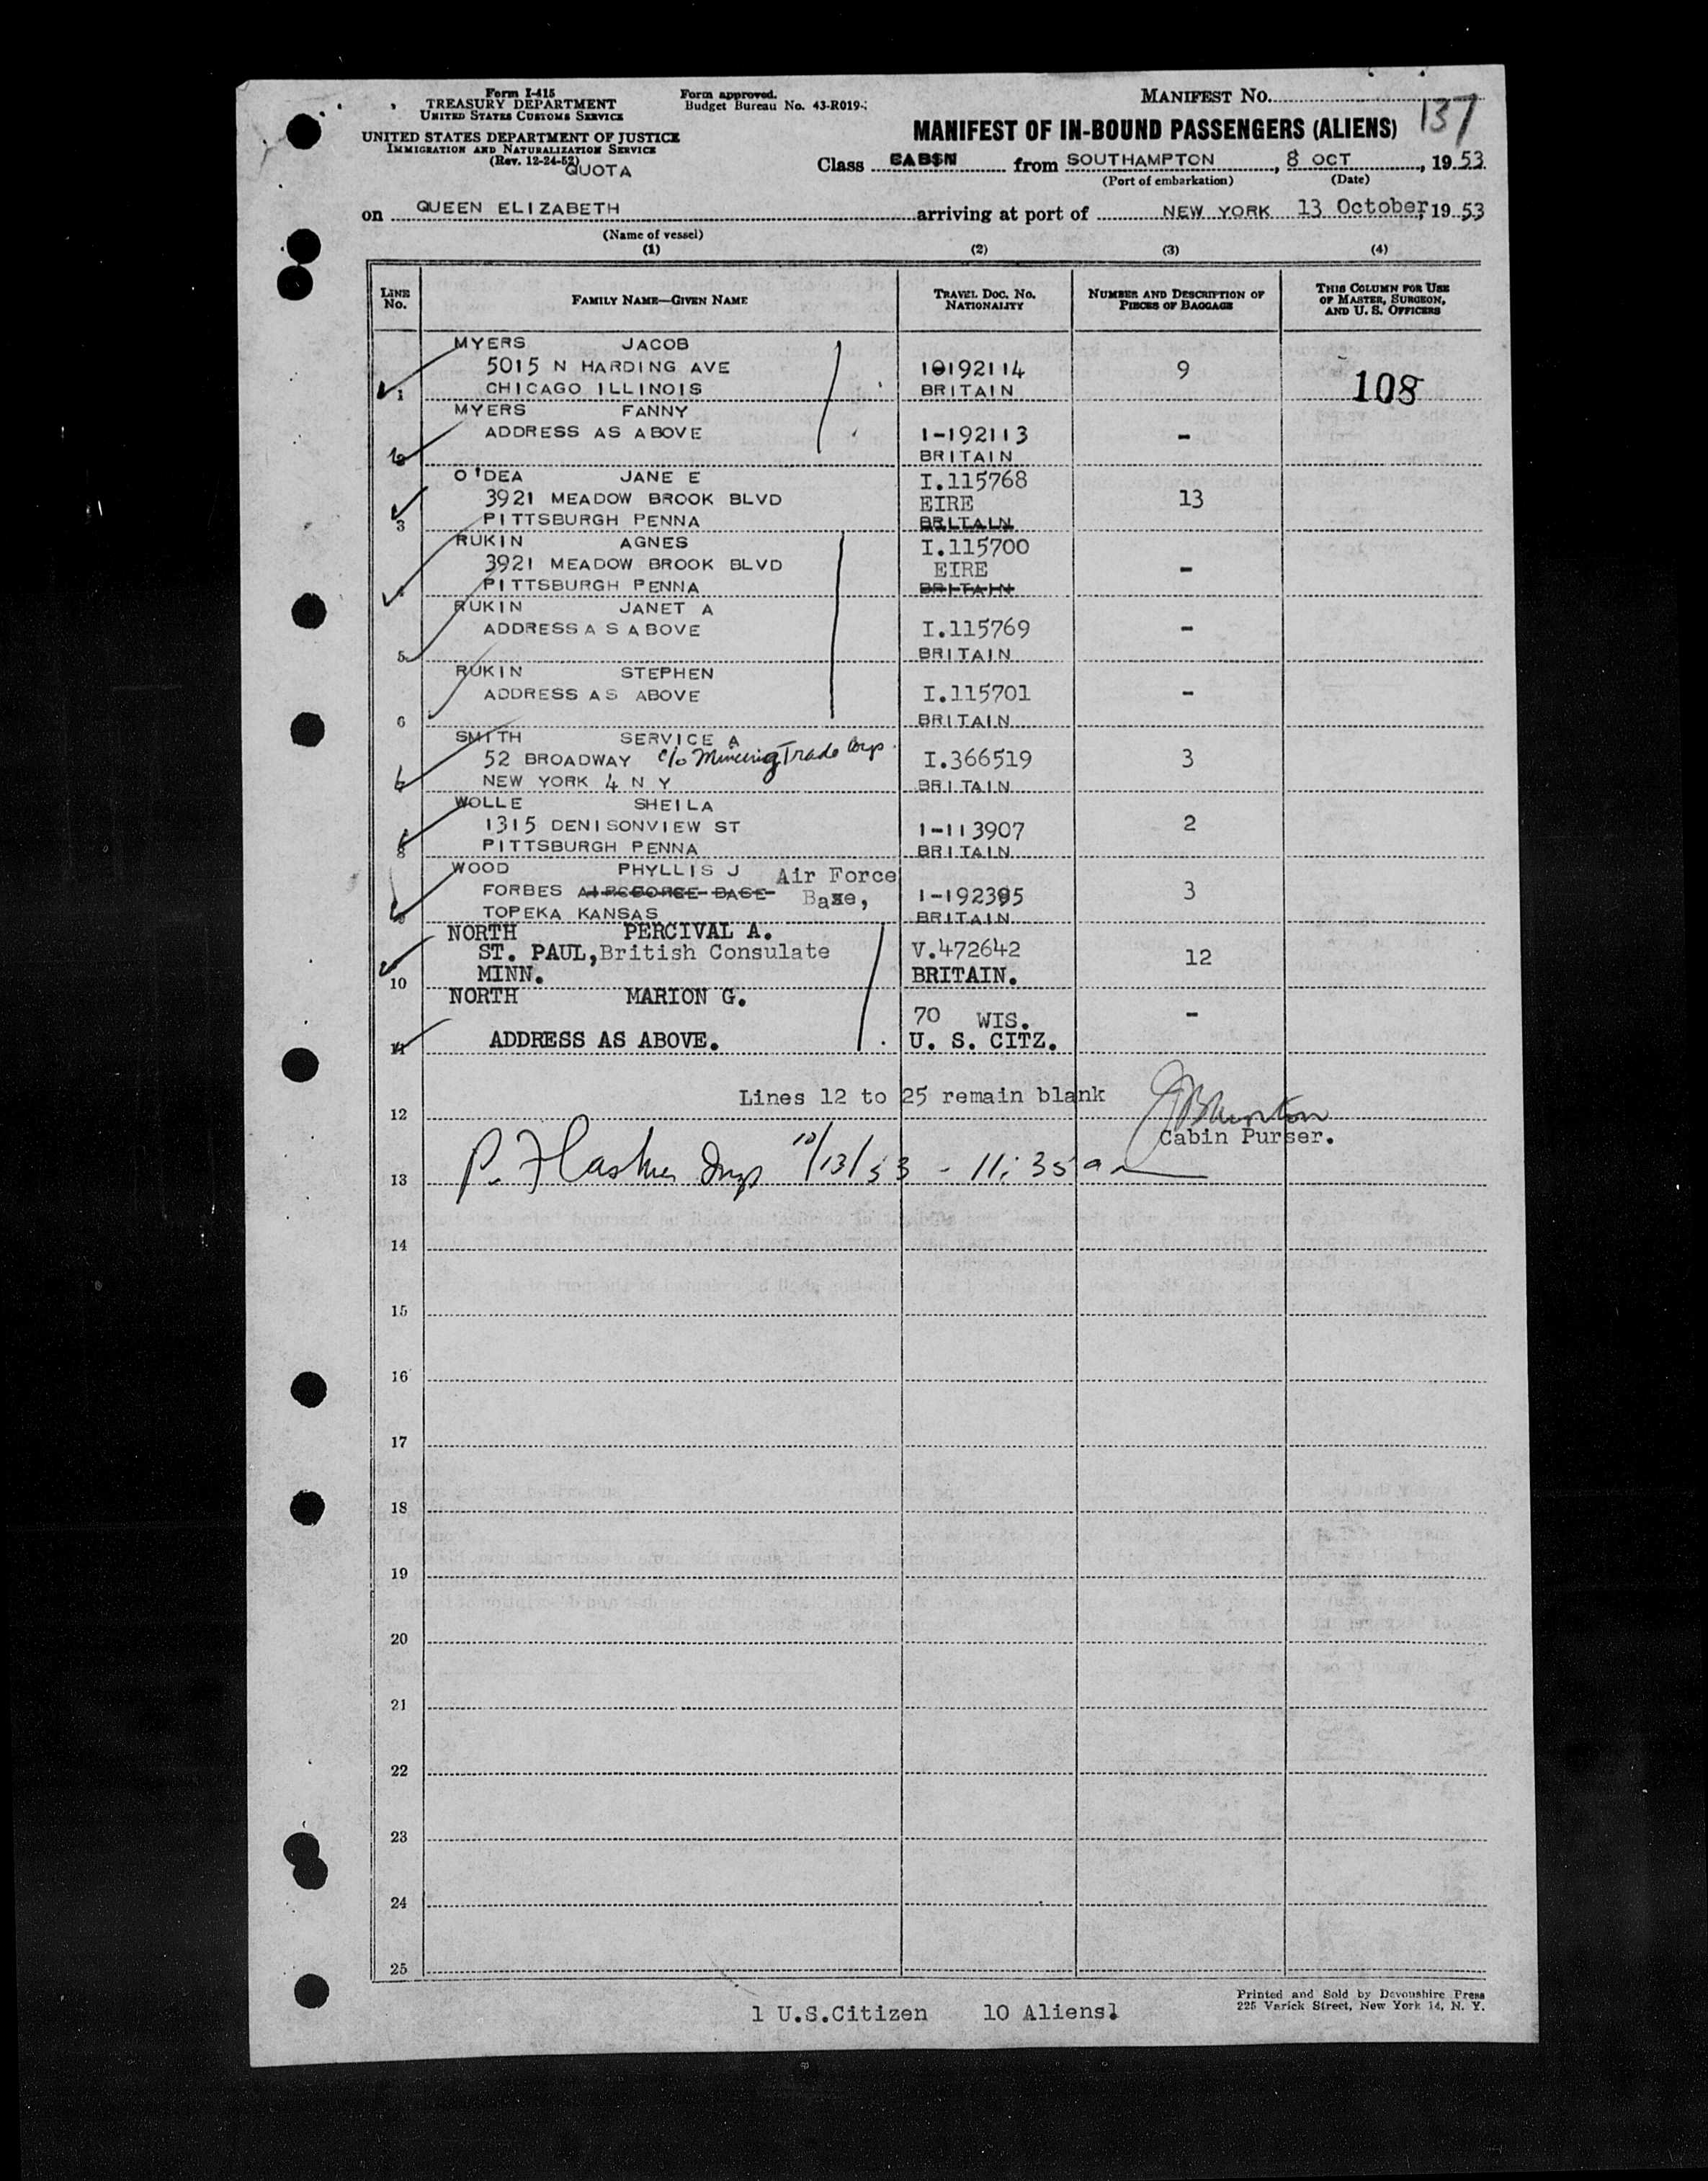 Form I-415
TREASURY DEPARTMENT
UNITED STATES CUSTOMS SERVICE
UNITED STATES DEPARTMENT OF JUSTICE
IMMIGRATION AND NATURALIZATION SERVICE
(Rev. 12-24-52)
QUOTA
Form approved.
Budget Bureau No. 43-R019-
MANIFEST No.
137
MANIFEST OF IN-BOUND PASSENGERS (ALIENS)
Class CABIN from SOUTHAMPTON, 8 OCT, 19 53
(Port of embarkation) (Date)
on QUEEN ELIZABETH arriving at port of NEW YORK 13 October, 19 53
(Name of vessel)
(1) (2) (3) (4)
LINE No. FAMILY NAME—GIVEN NAME TRAVEL DOC. NO. NATIONALITY NUMBER AND DESCRIPTION OF PIECES OF BAGGAGE THIS COLUMN FOR USE OF MASTER, SURGEON, AND U. S. OFFICERS
MYERS JACOB
5015 N HARDING AVE 10192114 9
1 CHICAGO ILLINOIS BRITAIN 108
MYERS FANNY
ADDRESS AS ABOVE 1-192113 -
2 BRITAIN
O'DEA JANE E I.115768
3921 MEADOW BROOK BLVD EIRE 13
3 PITTSBURGH PENNA BRITAIN
RUKIN AGNES I.115700
3921 MEADOW BROOK BLVD EIRE -
4 PITTSBURGH PENNA BRITAIN
RUKIN JANET A
ADDRESS A S A BOVE I.115769 -
5 BRITAIN
RUKIN STEPHEN
ADDRESS AS ABOVE I.115701 -
6 BRITAIN
SMITH SERVICE A
52 BROADWAY c/o Mincing Trade Corp. I.366519 3
NEW YORK 4 N Y BRITAIN
WOLLE SHEILA
1315 DENISONVIEW ST 1-113907 2
8 PITTSBURGH PENNA BRITAIN
WOOD PHYLLIS J Air Force
FORBES AIRCEORCE BASE Base, 1-192395 3
9 TOPEKA KANSAS BRITAIN
NORTH PERCIVAL A.
ST. PAUL, British Consulate V.472642 12
10 MINN. BRITAIN.
NORTH MARION G.
70 WIS. -
11 ADDRESS AS ABOVE. U. S. CITZ.
Lines 12 to 25 remain blank
12
Cabin Purser.
13 P. Insp 10/13/53 - 11:35 am
14
15
16
17
18
19
20
21
22
23
24
25
1 U.S.Citizen 10 Aliens.
Printed and Sold by Devonshire Press
225 Varick Street, New York 14, N. Y.